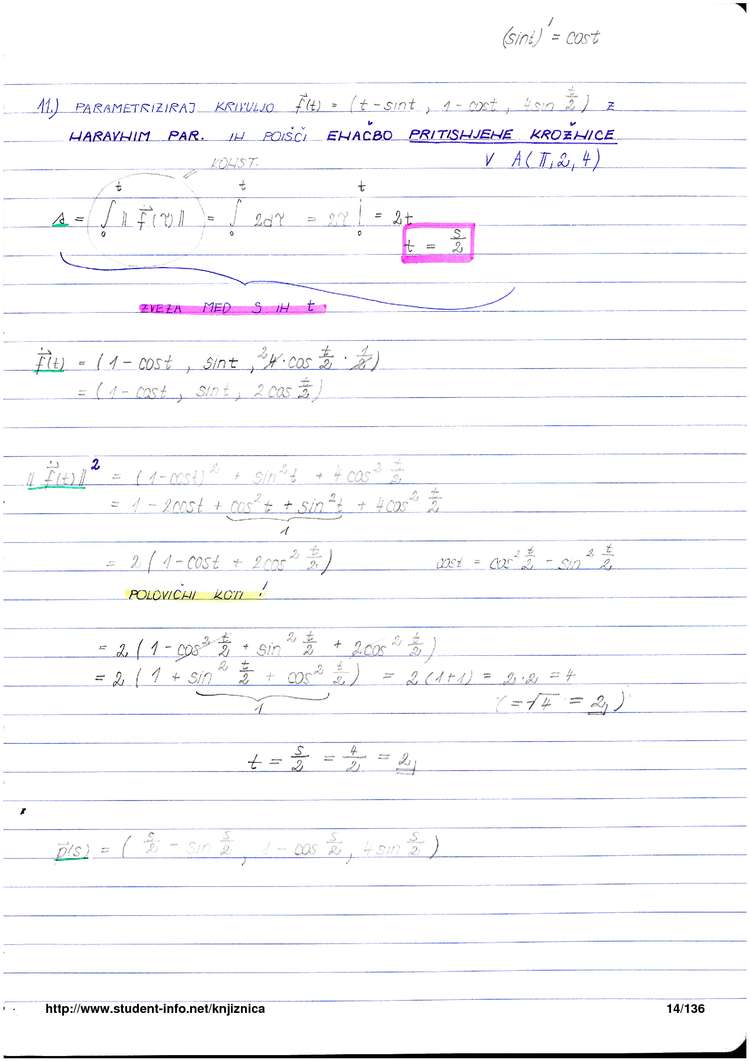 (sin t)' = cos t
11.) PARAMETRIZIRAJ KRIVULJO f⃗(t) = (t - sin t, 1 - cos t, 4 sin t/2) Z
NARAVNIM PAR. IN POIŠČI ENAČBO PRITISNJENE KROŽNICE
V A(π, 2, 4)
KONST.
s = ∫₀ᵗ ‖ḟ⃗(τ)‖ = ∫₀ᵗ 2dτ = 2τ |₀ᵗ = 2t
t = s/2
ZVEZA MED S IN t
ḟ⃗(t) = (1 - cos t, sin t, ²4 · cos t/2 · 1/2)
= (1 - cos t, sin t, 2 cos t/2)
‖ḟ⃗(t)‖² = (1 - cos t)² + sin² t + 4 cos² t/2
= 1 - 2cos t + cos² t + sin² t + 4cos² t/2
1
= 2(1 - cos t + 2cos² t/2) cos t = cos² t/2 - sin² t/2
POLOVIČNI KOTI!
= 2(1 - cos² t/2 + sin² t/2 + 2cos² t/2)
= 2(1 + sin² t/2 + cos² t/2) = 2(1+1) = 2·2 = 4
1 (= √4 = 2)
t = s/2 = 4/2 = 2
p⃗(s) = (s/2 - sin s/2, 1 - cos s/2, 4 sin s/2)
http://www.student-info.net/knjiznica 14/136